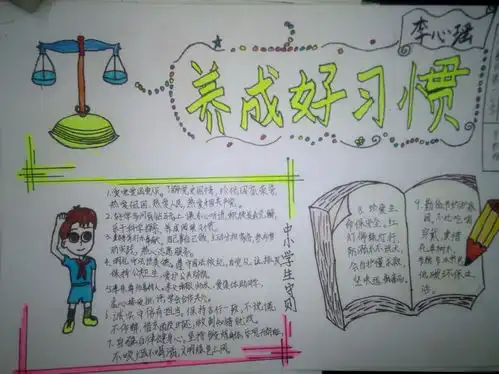 李心瑶
养成好习惯
中小学生守则
1.爱党爱国爱人民。了解党史国情,珍视国家荣誉,
热爱祖国,热爱人民,热爱中国共产党。
2.好学多问肯钻研。上课专心听讲,积极发表见解,
乐于科学探索,养成阅读习惯。
3.勤劳笃行乐奉献。自己事自己做,主动分担家务,参与劳
动实践,热心志愿服务。
4.明礼守法讲美德。遵守国法校纪,自觉礼让排队,
保持公共卫生,爱护公共财物。
5.孝亲尊师善待人。孝父母敬师长,爱集体助同学,
虚心接受批评,学会合作共处。
6.诚实守信有担当。保持言行一致,不说谎
不作弊,借东西及时还,做到知错就改。
7.自强自律健身心。坚持锻炼身体,乐观开朗向上,
不吸烟不喝酒,文明绿色上网。
8.珍爱生
命保安全。红
灯停绿灯行,
防溺水不玩火,
会自护懂求救,
坚决远离毒品。
9.勤俭节约护家
园。不比吃喝
穿戴,爱惜
花草树木,
节粮节水节电
低碳环保生
活。